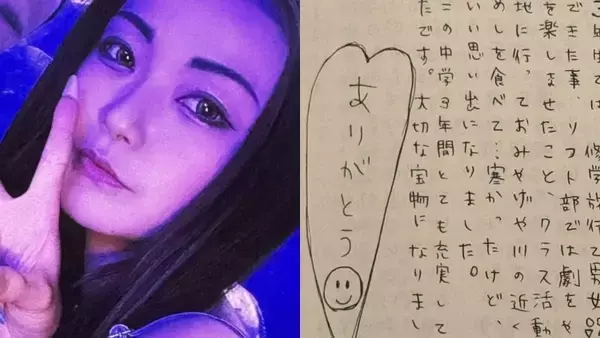 年生では、修学旅行で男女
できた事、ソフト部では劇をや
を楽しませたこと、クラス活動
地に行っておみやげや川の近く
めしを食べて…寒かったけど、
いい思い出になりました。
この中学3年間とても充実して
たです。大切な宝物になりまし
ありがとう